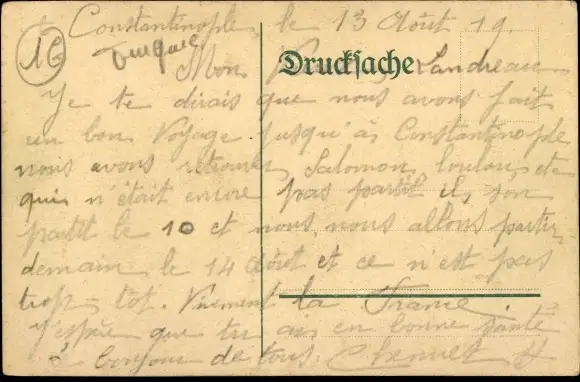 16
Constantinople, le 13 Août 19.
Turquie
Mon Landreau
Drucksache
Je te dirais que nous avons fait
un bon Voyage jusqu'à Constantinople
nous avons retrouvés Salomon, loulou, etc
qui n'était encore pas partit ils son
partit le 10 et nous, nous allons partir
demain le 14 Août et ce n'est pas
trop tot. Vivement la France
J'espère que tu as en bonne santé
bonjour de tous.